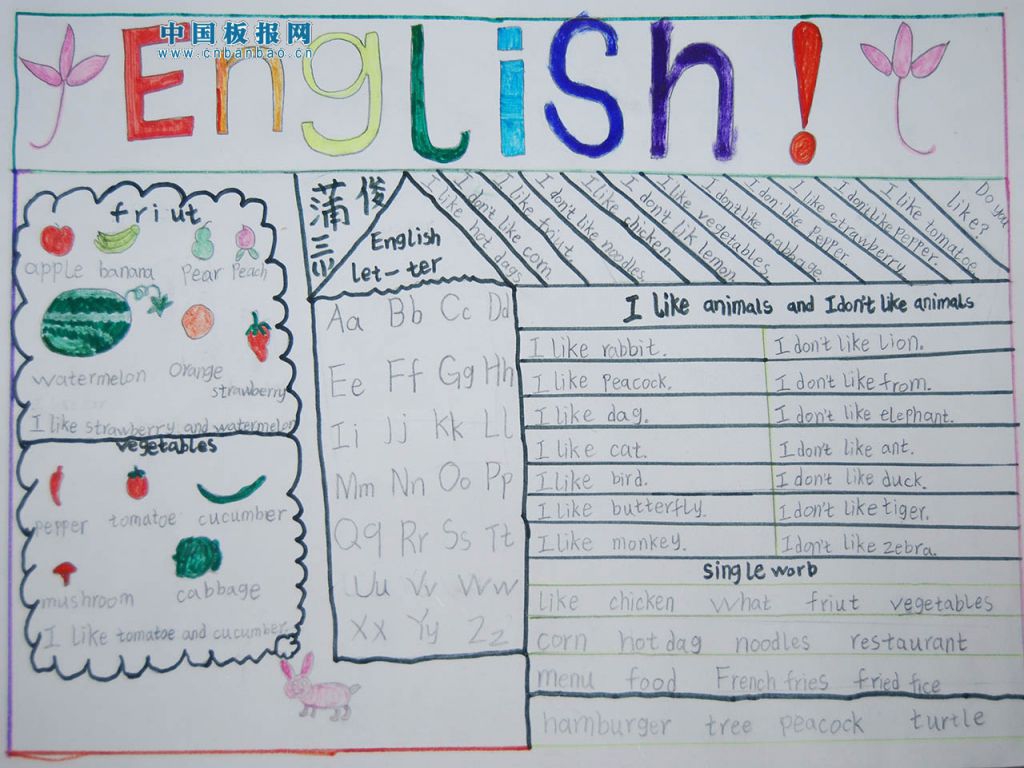 中国板报网
www.cnbanbao.cn
English!
friut
apple banana pear Peach
watermelon Orange strawberry
I like strawberry and watermelon
vegetables
pepper tomatoe cucumber
mushroom cabbage
I like tomatoe and cucumber
俊
蒲
三
English
let-ter
Aa Bb Cc Dd
Ee Ff Gg Hh
Ii Jj Kk Ll
Mm Nn Oo Pp
Qq Rr Ss Tt
Uu Vv Ww
Xx Yy Zz
I like hot dags
I don't like corn
I like friut
I don't like noodles
I like chicken
I don't lik lemon
I like vegetables
I don't like cabbage
I don' like pepper
I like strawberry
I don't like pepper.
I like tomatoe
Do you like?
I like animals and I don't like animals
I like rabbit. I don't like Lion.
I like peacock. I don't like from.
I like dag. I don't like elephant.
I like cat. I don't like ant.
I like bird. I don't like duck.
I like butterfly. I don't like tiger.
I like monkey. I don't like zebra.
single worb
like chicken what friut vegetables
corn hot dag noodles restaurant
menu food French fries fried fice
hamburger tree peacock turtle